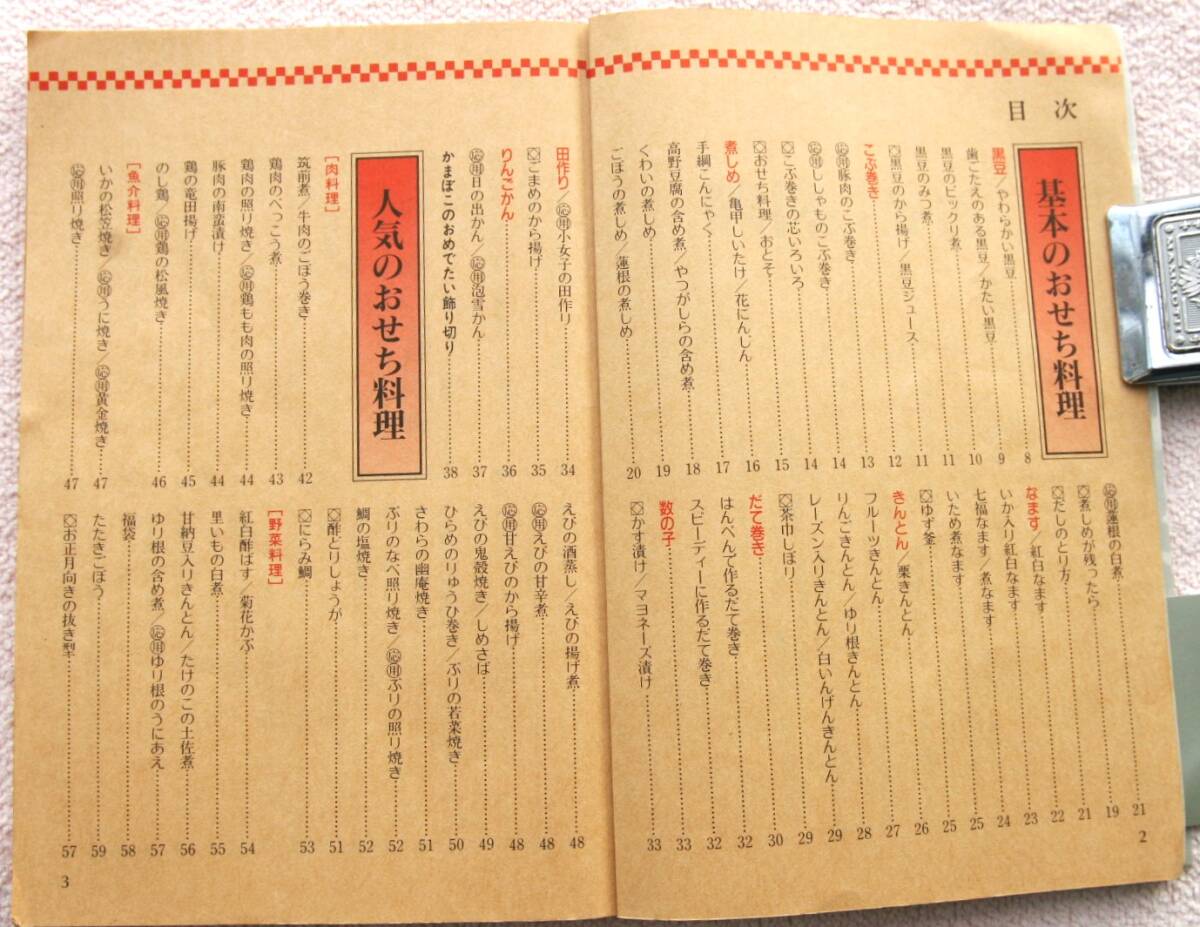 目次
基本のおせち料理
黒豆/やわらかい黒豆……8
歯ごたえのある黒豆/かたい黒豆……9
黒豆のビックリ煮……10
黒豆のみつ煮……11
黒豆のから揚げ/黒豆ジュース……11
こぶ巻き……12
応用豚肉のこぶ巻き……13
応用ししゃものこぶ巻き……14
こぶ巻きの芯いろいろ……14
おせち料理/おとそ……15
煮しめ/亀甲しいたけ/花にんじん……16
手綱こんにゃく……17
高野豆腐の含め煮/やつがしらの含め煮……18
くわいの煮しめ……19
ごぼうの煮しめ/蓮根の煮しめ……20
応用蓮根の白煮……21
煮しめが残ったら……19
だしのとり方……21
なます/紅白なます……22
いか入り紅白なます……23
七福なます/煮なます……24
いため煮なます……25
ゆず釜……25
きんとん/栗きんとん……26
フルーツきんとん……27
りんごきんとん/ゆり根きんとん……28
レーズン入りきんとん/白いんげんきんとん……29
茶巾しぼり……29
だて巻き……30
はんぺんで作るだて巻き……32
スピーディーに作るだて巻き……32
数の子……33
かす漬け/マヨネーズ漬け……33
2
田作り/応用小女子の田作り……34
ごまめのから揚げ……35
りんごかん……36
応用日の出かん/応用泡雪かん……37
かまぼこのおめでたい飾り切り……38
人気のおせち料理
[肉料理]
筑前煮/牛肉のごぼう巻き……42
鶏肉のべっこう煮……43
鶏肉の照り焼き/応用鶏もも肉の照り焼き……44
豚肉の南蛮漬け……44
鶏の竜田揚げ……45
のし鶏/応用鶏の松風焼き……46
[魚介料理]
いかの松笠焼き/応用うに焼き/応用黄金焼き……47
応用照り焼き……47
えびの酒蒸し/えびの揚げ煮……48
応用えびの甘辛煮……48
応用甘えびのから揚げ……48
えびの鬼殻焼き/しめさば……49
ひらめのりゅうひ巻き/ぶりの若菜焼き……50
さわらの幽庵焼き……51
ぶりのなべ照り焼き/応用ぶりの照り焼き……52
鯛の塩焼き……52
酢どりしょうが……51
にらみ鯛……53
[野菜料理]
紅白酢ばす/菊花かぶ……54
里いもの白煮……55
甘納豆入りきんとん/たけのこの土佐煮……56
ゆり根の含め煮/応用ゆり根のうにあえ……57
福袋……58
たたきごぼう……59
お正月向きの抜き型……57
3